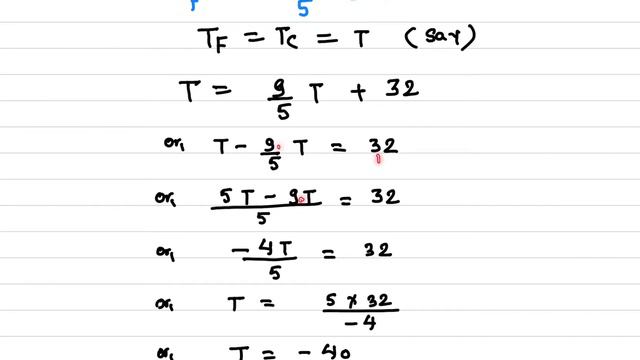 F 5
T_F = T_C = T (say)
T = 9/5 T + 32
or, T - 9/5 T = 32
or, (5T - 9T)/5 = 32
or, -4T/5 = 32
or, T = (5 × 32)/-4
or, T = -40